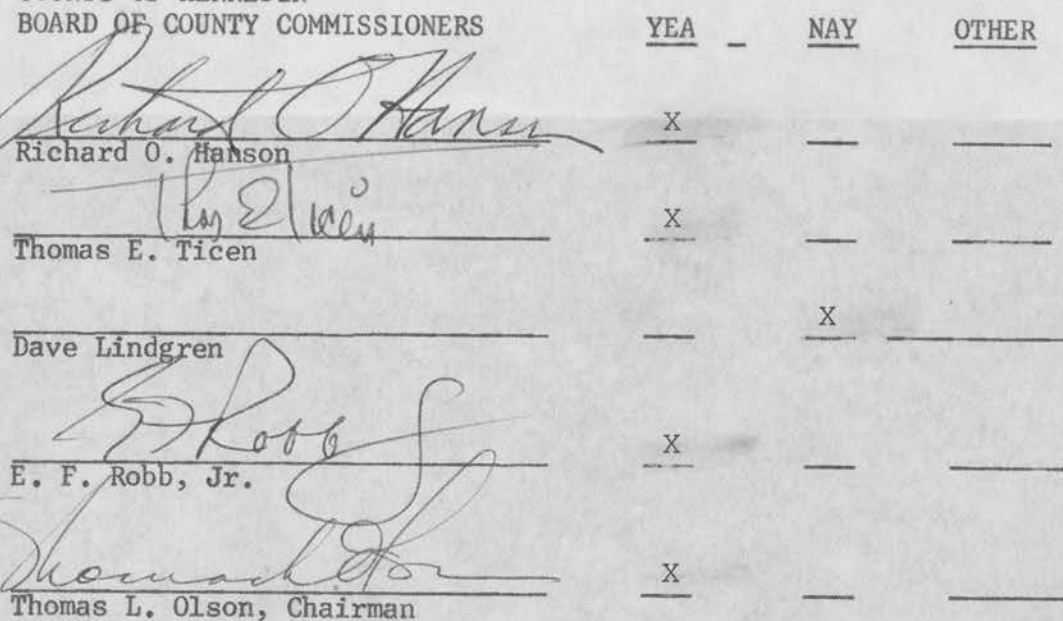 BOARD OF COUNTY COMMISSIONERS YEA NAY OTHER
Richard O Hanson X
Richard O. Hanson
Thomas E. Ticen X
X
Dave Lindgren
E F Robb Jr X
E. F. Robb, Jr.
Thomas L Olson X
Thomas L. Olson, Chairman